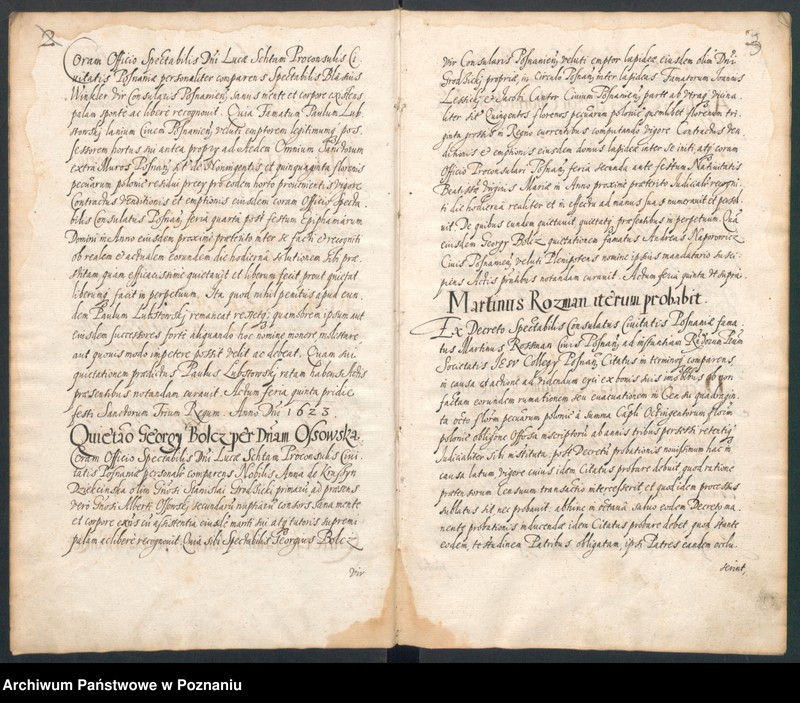 2
Coram Officio Spectabilis Dni Lucæ Schtum Proconsulis Ci-
uitatis Posnaniæ personaliter comparens Spectabilis Blasius
Winkler Vir Consularis Posnanien, sanus mente et corpore existens
palam sponte ac libere recognouit. Quia Famatum Paulum Lub
stowsky lanium Ciuem Posnanien, veluti emptorem legitimumq, pos-
sessorem hortus sui antea proprÿ ad Aedem Omnium Sanctorum
extra Muros Posnan,
pecuarum poloniæ residui precÿ pro eodem horto prouenientis vigore
Contractus venditionis et emptionis eiusdem coram Officio Specta-
bilis Consulatus Posnan, feria quarta post festum Epiphaniarum
Domini in Anno eiusdem proxime præterito inter se facti et recogniti
ob realem et actualem eorundem die hodierna solutionem sibi præ-
stitam quam efficacissime quietauit et liberum fecit prout quietat
liberumq, facit in perpetuum. Ita quod nihil penitus apud eun-
dem Paulum Lubstowsky remaneat quamobrem ipsum aut
eiusdem successores forte aliquando hoc nomine monere molestare
aut quouis modo impetere possit velit ac debeat. Quam sui
quietationem prædictus Paulus Lubstowsky ratam habens Actis
præsentibus notandam curauit. Actum feria quinta pridie
festi Sanctorum Trium Regum. Anno Dni 1623.
Quietao Georgÿ Bolcz per Dnam Ossowska.
Coram Officio Spectabilis Dni Lucæ Schtam Proconsulis Ciui-
tatis Posnaniæ personalr comparens Nobilis Anna de
Dziekcinska olim Gnosi Stanislai Grodsickÿ primarÿ ad præsens
vero Gnosi Alberti Ossowskÿ secundarÿ nuptiarum consors sana mente
et corpore exns cu assistentia eiusde mariti sui atq, tutoris supremi
palam ac libere recognouit. Quia sibi Spectabilis Georgius Bolcz
Vir
3
Vir Consularis Posnanien, veluti emptor lapideæ eiusdem olim Dni
Grodsickÿ propriæ, in Circulo Posnan, inter lapideas Famatorum Joannis
et Jacobi Cantor Ciuium Posnanien, parte ab vtraq, vicina-
liter Quingentos florenos pecuarum poloniæ quemlibet florenum tri-
ginta grossis in Regno currentibus computando vigore Contractus ven-
ditionis et emptionis eiusdem domus lapideæ inter se initi, atq, coram
Officio Proconsulari Posnan, feria secunda ante festum Natiuitatis
Beatissæ Virginis Mariæ in Anno proxime præterito Judicialr recogni-
ti die hodierna realiter et in effectu ad manus suas numerauit et persol-
uit. De quibus eundem quietauit quietatq, præsentibus in perpetuum. Qua
eiusdem Georgÿ Bolcz quietationem famatus Andreas Naporowicz
Ciuis Posnanien, veluti Plenipotens nomine ipsius mandatario susci-
piens Actis prntibus notandam curauit. Actum feria quinta vt supra.
Martinus Rozman iterum probabit.
Ex Decreto Spectabilis Consulatus Ciuitatis Posnaniæ fama-
tus Martinus Rossman Ciuis Posnan, ad instantiam Rndorum Prum
Societatis JESV Collegÿ Posnan, Citatus in termino comparens
in causa et actione ad videndum excipi ex bonis suis imobilibus ob non
factam eorundem rumationem seu euacuationem in Censu quadragin-
ta octo florin, pecuarum poloniæ à summa Capli Octingentorum florin
poloniæ oblignis Officiosæ inscriptoriæ ab annis tribus persoltis retentiq,
Judicialiter sibi institutæ, post Decretum probationis nouissimum hac in
causa latum vigore cuius idem Citatus probare debuit quod ratione
protestorum Censuum transactio intercesserit, et quod idem processus
sublatus sit, nec probauit. abhinc in octaua saluo eodem Decreto ma-
nente, probationis inducendæ idem Citatus probare debet, quod stante
eadem testudinea Patribus obligatam, ipsi Patres eandem occlu-
serint,
Archiwum Państwowe w Poznaniu